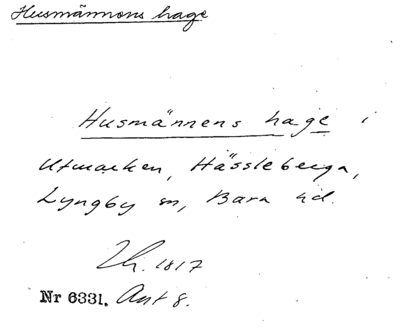 Husmännens hage
Husmännens hage i
Utmarken, Hässleberga,
Lyngby sn, Bara hd.
Lh. 1817
Nr 6331. Akt 8.